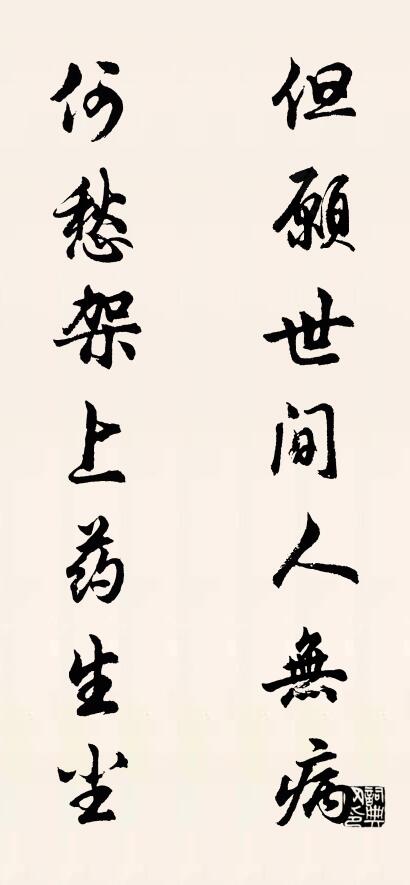 但願世间人無病
何愁架上药生尘